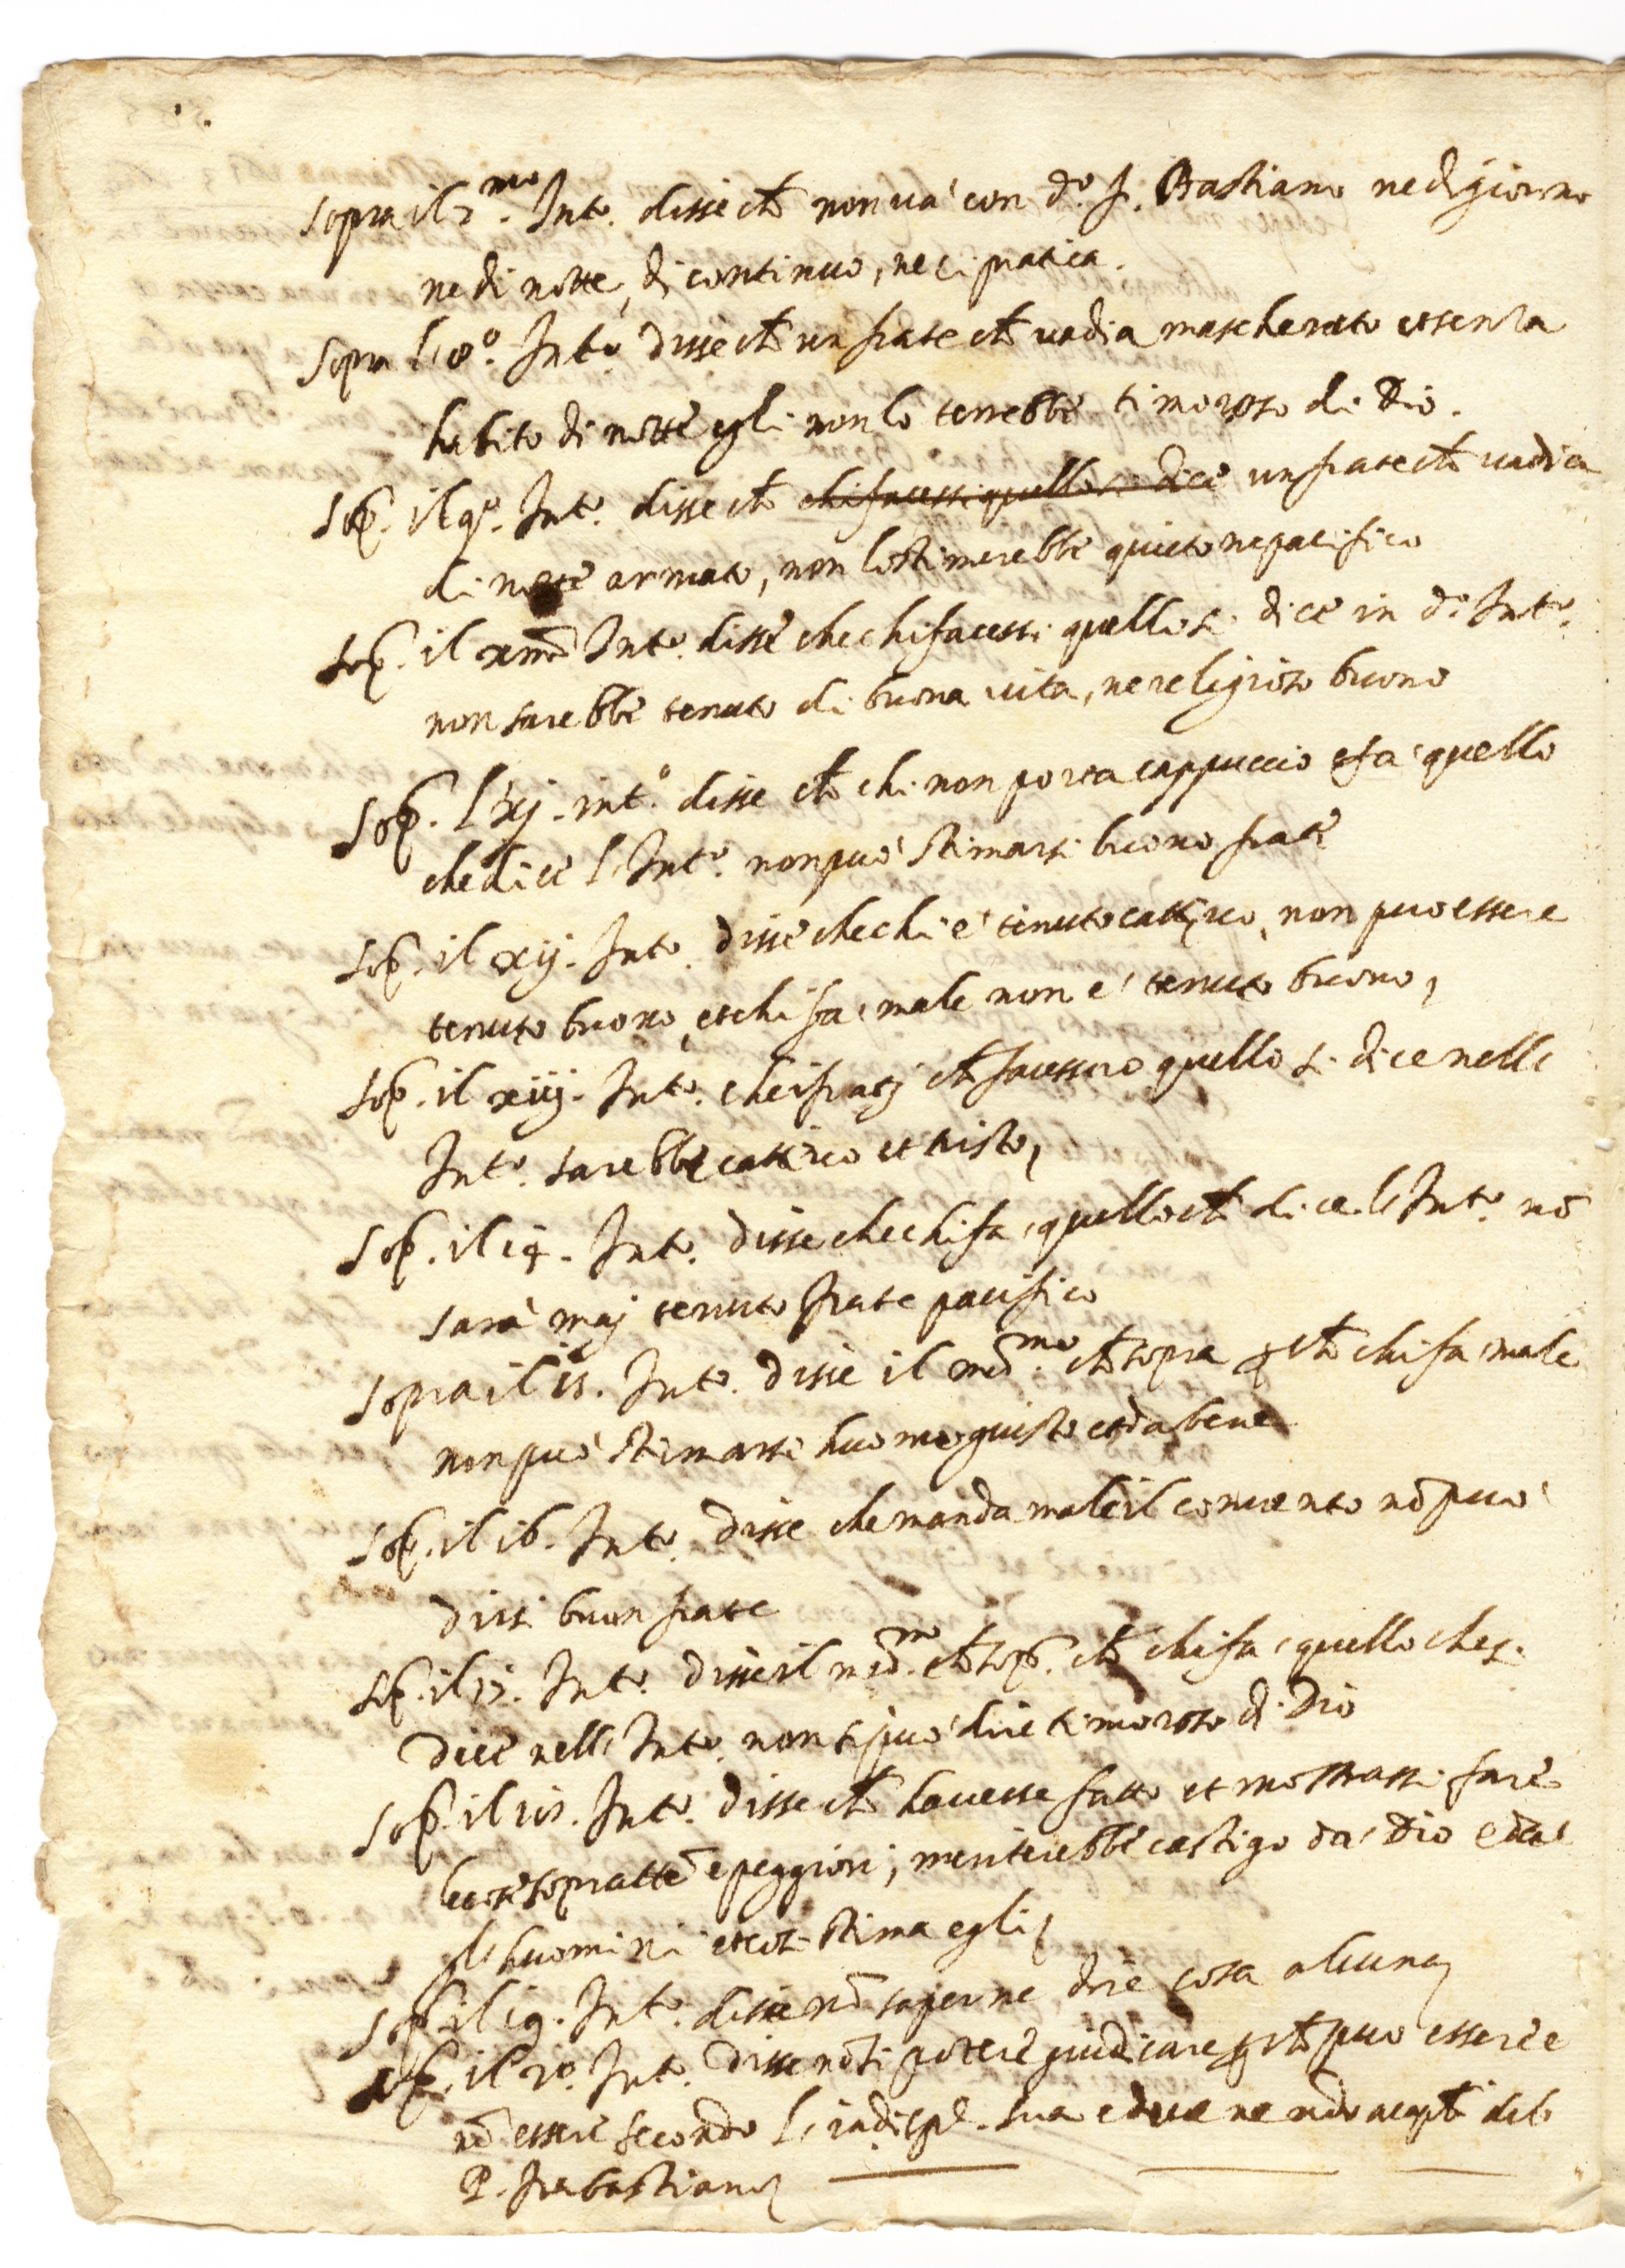 sopra il 7.mo Int.o disse ch̃ non ua' con d.o f. Bastiano ne di giorno
ne di notte, di continuo, ne ci pratica.
Sopra l'8.o Int.o disse ch̃ un frate ch̃ uadia mascherato et senza
habito di notte egli non lo terrebbe timoroso di Dio.
Sop.a il 9.o Int.o disse ch̃ chi facessi quello si dice un frate ch̃ uadia
di notte armato, non lo stimerebbe quieto ne pacifico
Sop.a il x.mo Int.o disse che chi facessi quello si dice in d.o Int.o
non sarebbe tenuto di buona uita, ne religioso buono
Sop.a l'xj. int.o disse ch̃ chi non porta cappuccio e fa' quello
che dice l'Int.o non puo' stimarsi buono frate
Sop.a il xij. Int.o disse che chi e' tenuto cattiuo, non puo essere
tenuto buono, et chi fa' male non e' tenuto buono,
Sop.a il xiij. Int.o che i fratj ch̃ facessero quello si dice nell'
Int.o sarebbe cattiuo et tristo,
Sop.a il 14. Int.o disse che chi fa' quello ch̃ dice l'Int.o nõ
sara' maj tenuto frate pacifico
Sopra il 15. Int.o disse il med.mo ch̃ sopra p ch̃ chi fa' male
non puo' stimarsi huomo giusto et da bene
Sop.a il 16. Int.o disse che manda male il conuento nõ puo'
dirsi buon frate
Sop.a il 17. Int.o disse il med.mo ch̃ sop.a ch̃ chi fa' quello che si
dice nell'Int.o non si puo' dire timoroso di Dio
Sop.a il 18. Int.o disse ch̃ hauesse fatto et mostrassi fare
le cose sopratte e peggiori, meriterebbe castigo da' Dio e da'
gl'huomini et cosi stima egli,
Sop.a il 19. Int.o disse nõ saperne dire cosa alcuna,
Sop.a il 20. Int.o disse nõ si potere giudicare p ch̃ puo essere e
nõ essere secondo l' sua e del
P. fra bastiano,